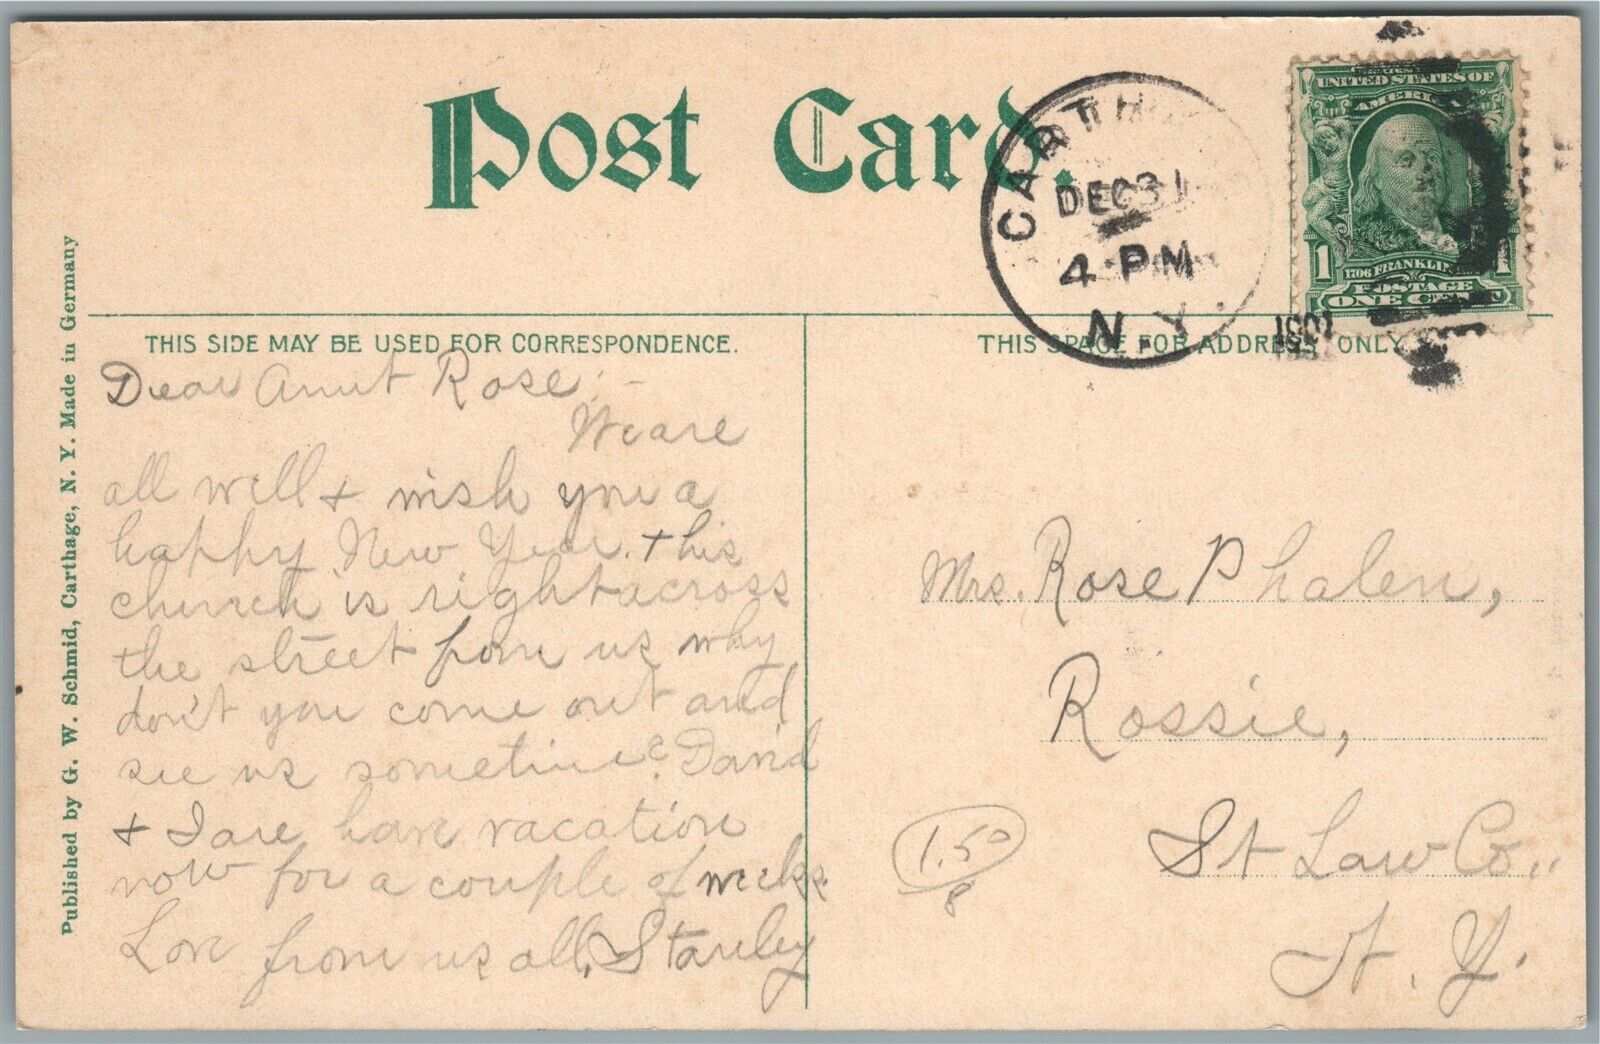 Post Card.
CARTH
DEC 31
4 PM
N Y.
UNITED STATES OF
AMERICA
1706 FRANKLIN
1 1
POSTAGE
ONE CENT
THIS SIDE MAY BE USED FOR CORRESPONDENCE.
THIS SPACE FOR ADDRESS ONLY
Published by G. W. Schmid, Carthage, N. Y. Made in Germany
Dear Aunt Rose:-
We are
all well + wish you a
happy New Year. this
church is right across
the street from us why
don't you come out and
see us sometime? David
+ I are have vacation
now for a couple of weeks.
Love from us all, Stanley
Mrs. Rose Phalen,
Rossie,
St Law Co.,
N. Y.
1.50
8